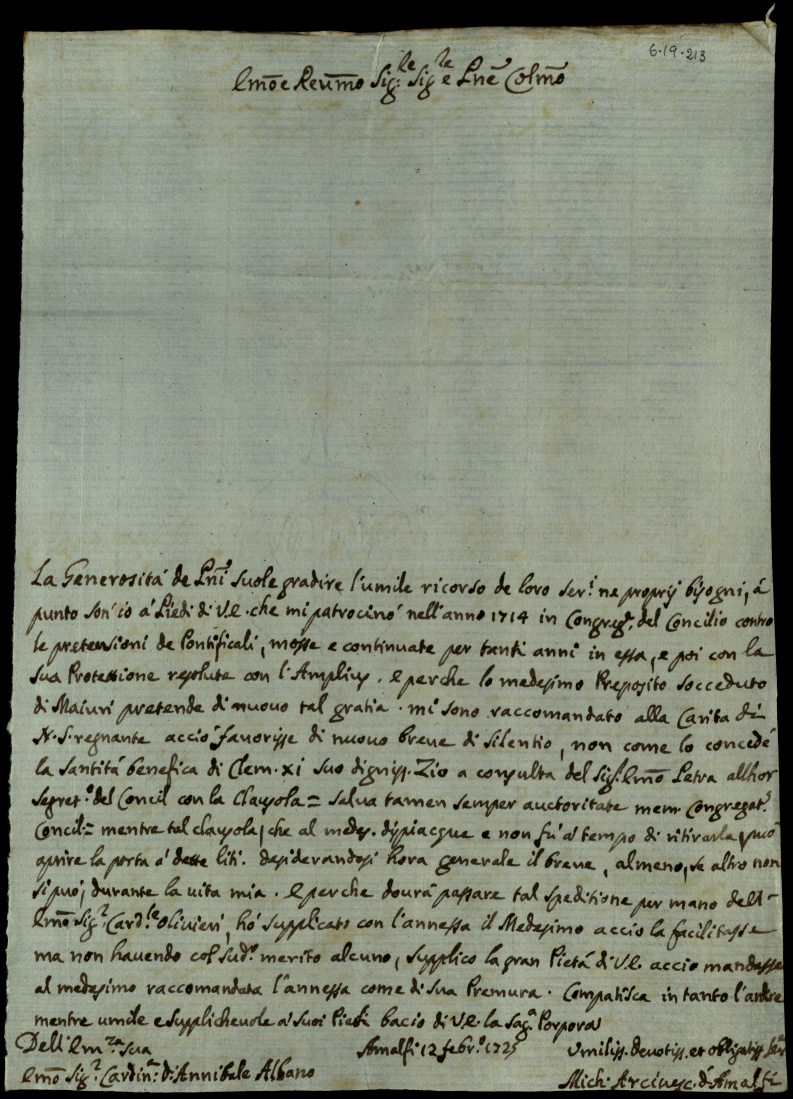 6-19-213
Em̃o e Reum̃o Sig:le Sig.le e Pñe Colm̃o
La Generosità de Pñi suole gradire l'umile ricorso de loro ser.i ne proprij bisogni, á
punto son' io a' Piedi di V.E. che mi patrocinó nell'anno 1714 in Congreg.e del Concilio contro
le pretensioni de Pontificali, mosse e continuate per tanti anni in essa, e poi con la
sua Protettione resolute con l'Amplius. E perche lo medesimo Preposito socceduto
di Maiuri pretende di nuovo tal gratia. mi sono raccomandato alla Carita di
N.S. regnante acciò favorisse di nuovo breve di silentio, non come lo concedé
la Santitá benefica di Clem. xi suo digniss. Zio a consulta del Sig.r Em̃o Petra allhor
Segret.o del Concil con la Clausola = salva tamen semper auctoritate mem. Congregat.s
Concil: = mentre tal clausola, che al medes. dispiacque e non fú a' tempo di ritirarla, può
aprire la porta á dette liti. desiderandosi hora generale il breve, almeno, se altro non
si può, durante la vita mia. E perche dourà passare tal speditione per mano dell'
Em̃o Sig.r Card.le Olivieri, hó supplicato con l'annessa il Medesimo acciò la facilitasse
ma non havendo col sud.o merito alcuno, supplico la gran Pietá di V.E. acciò mandasse
al medesimo raccomandata l'annessa come di sua Premura. Compatisca in tanto l'ardire
mentre umile e supplichevole a' suoi Piedi bacio di V.E. la Sag.a Porpora
Dell' Em.za Sua Amalfi 12 febr.o 1725 Umiliss. devotiss. et obligatiss. ser.
Em̃o Sig.r Cardin.le D: Annibale Albano Mich: Arcivesc. d'Amalfi